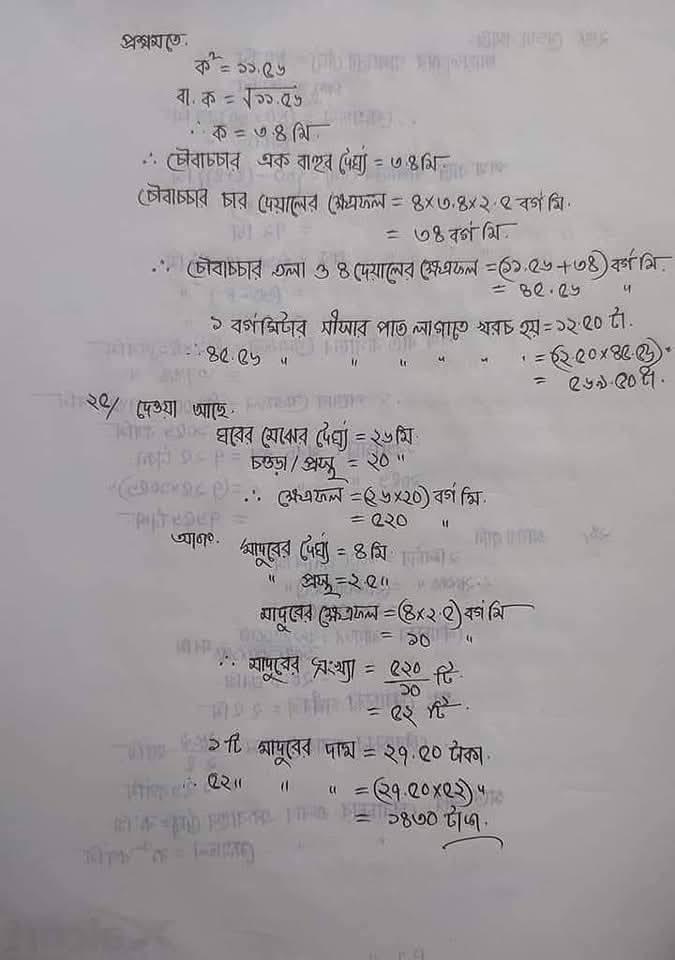 প্রশ্নমতে,
ক² = ১১.৫৬
বা, ক = √১১.৫৬
∴ ক = ৩.৪ মি.
∴ চৌবাচ্চার এক বাহুর দৈর্ঘ্য = ৩.৪ মি.
চৌবাচ্চার চার দেয়ালের ক্ষেত্রফল = ৪×৩.৪×২.৫ বর্গ মি.
= ৩৪ বর্গ মি.
∴ চৌবাচ্চার তলা ও ৪ দেয়ালের ক্ষেত্রফল = (১১.৫৬+৩৪) বর্গ মি.
= ৪৫.৫৬ "
১ বর্গমিটার সীসার পাত লাগাতে খরচ হয় = ১২.৫০ টা.
∴ ৪৫.৫৬ " " " " " " = (১২.৫০×৪৫.৫৬) "
= ৫৬৯.৫০ টা.
২৫/ দেওয়া আছে,
ঘরের মেঝের দৈর্ঘ্য = ২৬ মি.
চওড়া/প্রস্থ = ২০ "
∴ ক্ষেত্রফল = (২৬×২০) বর্গ মি.
= ৫২০ "
আবার, মাদুরের দৈর্ঘ্য = ৪ মি.
" প্রস্থ = ২.৫ "
মাদুরের ক্ষেত্রফল = (৪×২.৫) বর্গ মি
= ১০ "
∴ মাদুরের সংখ্যা = ৫২০/১০ টি
= ৫২ টি
১ টি মাদুরের দাম = ২৭.৫০ টাকা.
∴ ৫২ " " " = (২৭.৫০×৫২) "
= ১৪৩০ টাকা.